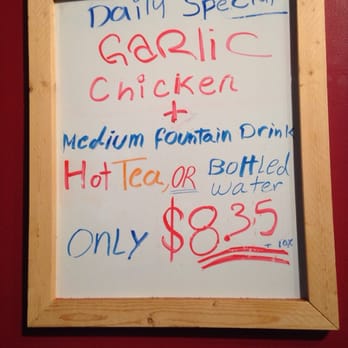 Daily Special
Garlic
Chicken
+
Medium Fountain Drink
Hot Tea, OR Bottled
water
ONLY $8.35
+ tax